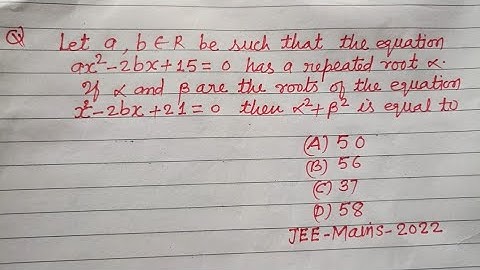 Q) Let a, b ∈ R be such that the equation
ax²-2bx+15=0 has a repeated root α.
If α and β are the roots of the equation
x²-2bx+21=0 then α²+β² is equal to
(A) 50
(B) 56
(C) 37
(D) 58
JEE-Mains-2022